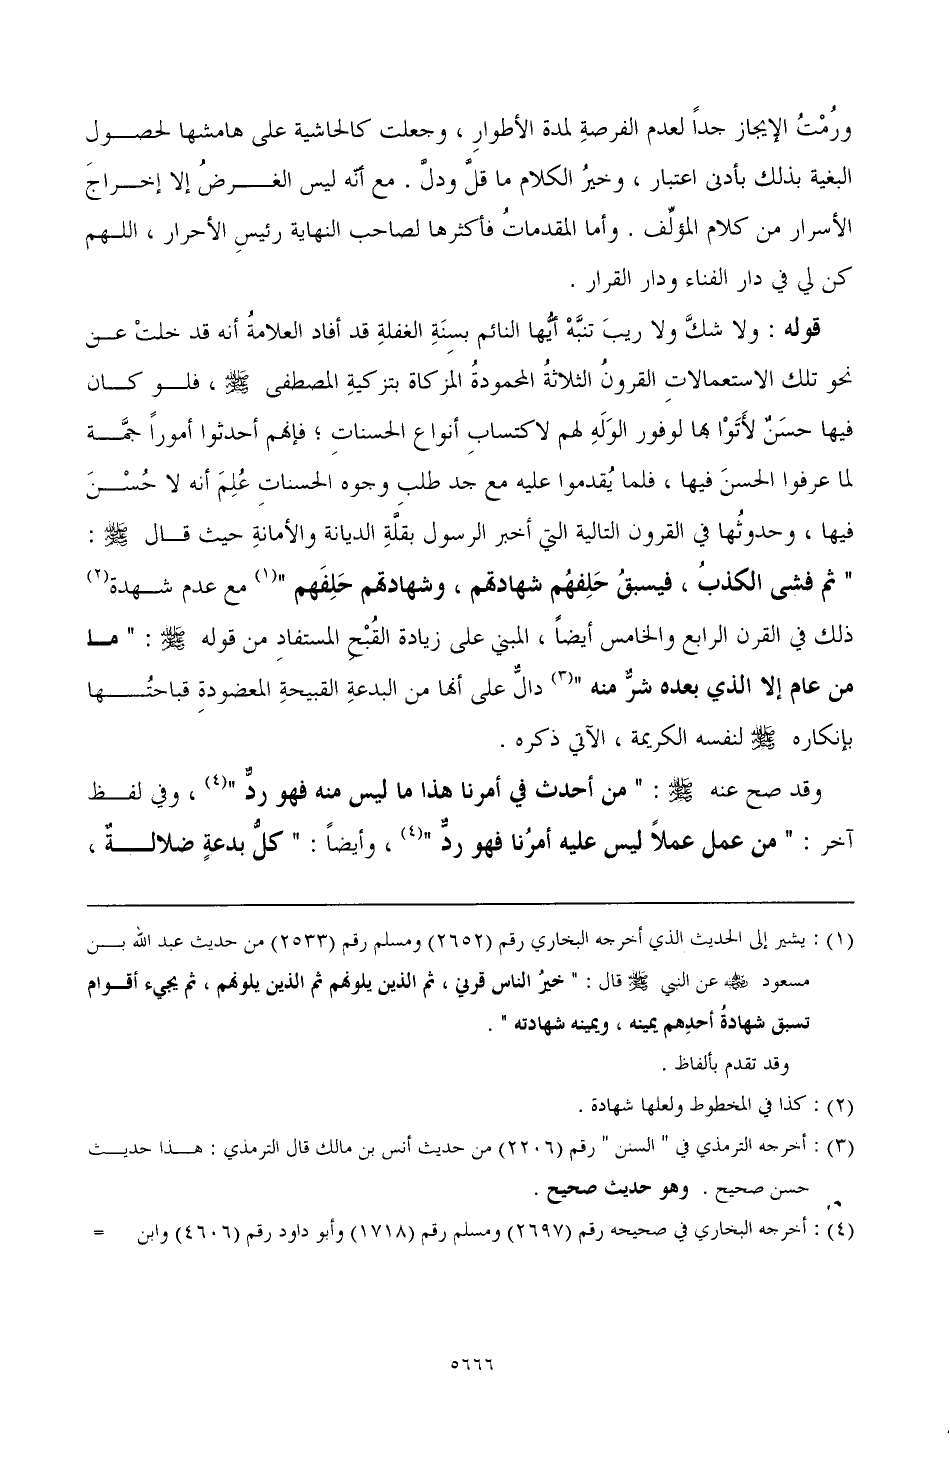 ورُمْتُ الإيجاز جداً لعدم الفرصةِ لمدة الأطوارِ ، وجعلت كالحاشية على هامشها لحصول
البغية بذلك بأدنى اعتبار ، وخيرُ الكلام ما قلَّ ودلَّ . مع أنّه ليس الغرضُ إلا إخراجَ
الأسرار من كلام المؤلِّف . وأما المقدماتُ فأكثرها لصاحب النهاية رئيسِ الأحرار ، اللهم
كن لي في دار الفناء ودار القرار .
قوله : ولا شكَّ ولا ريبَ تنبَّهْ أيُّها النائم بسنَةِ الغفلةِ قد أفاد العلامةُ أنه قد خلتْ عن
نحو تلك الاستعمالاتِ القرونُ الثلاثةُ المحمودةُ المزكاة بتزكيةِ المصطفى ﷺ ، فلو كان
فيها حسَنٌ لأَتَوْا بها لوفور الوَلَهِ لهم لاكتسابِ أنواع الحسنات ؛ فإنهم أحدثوا أموراً جمَّة
لما عرفوا الحسنَ فيها ، فلما يُقدموا عليه مع جد طلبِ وجوه الحسناتِ عُلِمَ أنه لا حُسْنَ
فيها ، وحدوثُها في القرون التالية التي أخبر الرسول بقلَّةِ الديانة والأمانةِ حيث قال ﷺ :
" ثم فشى الكذبُ ، فيسبقُ حَلِفهُم شهادتهم ، وشهادتهم حَلِفَهم "(١) مع عدم شهدة(٢)
ذلك في القرن الرابع والخامس أيضاً ، المبني على زيادة القُبْحِ المستفاد من قوله ﷺ : " ما
من عام إلا الذي بعده شرٌّ منه "(٣) دالٌّ على أنها من البدعةِ القبيحةِ المعضودةِ قباحتُها
بإنكاره ﷺ لنفسه الكريمة ، الآتي ذكره .
وقد صح عنه ﷺ : " من أحدث في أمرنا هذا ما ليس منه فهو ردٌّ "(٤) ، وفي لفظ
آخر : " من عمل عملاً ليس عليه أمرُنا فهو ردٌّ "(٤) ، وأيضاً : " كلُّ بدعةٍ ضلالةٌ ،
(١) : يشير إلى الحديث الذي أخرجه البخاري رقم (٢٦٥٢) ومسلم رقم (٢٥٣٣) من حديث عبد الله بن
مسعود ﷺ عن النبي ﷺ قال : " خيرُ الناس قرني ، ثم الذين يلونهم ثم الذين يلونهم ، ثم يجيء أقوام
تسبق شهادةُ أحدِهم يمينه ، ويمينه شهادته " .
وقد تقدم بألفاظ .
(٢) : كذا في المخطوط ولعلها شهادة .
(٣) : أخرجه الترمذي في " السنن " رقم (٢٢٠٦) من حديث أنس بن مالك قال الترمذي : هذا حديث
حسن صحيح . وهو حديث صحيح .
(٤) : أخرجه البخاري في صحيحه رقم (٢٦٩٧) ومسلم رقم (١٧١٨) وأبو داود رقم (٤٦٠٦) وابن =
٥٦٦٦